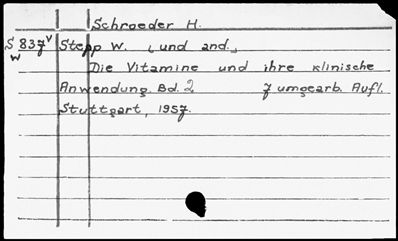 Schroeder H.
S 837 V Stepp W. (und and.,
W
Die Vitamine und ihre klinische
Anwendung. Bd. 2 7 umgearb. Aufl.
Stuttgart, 1957.